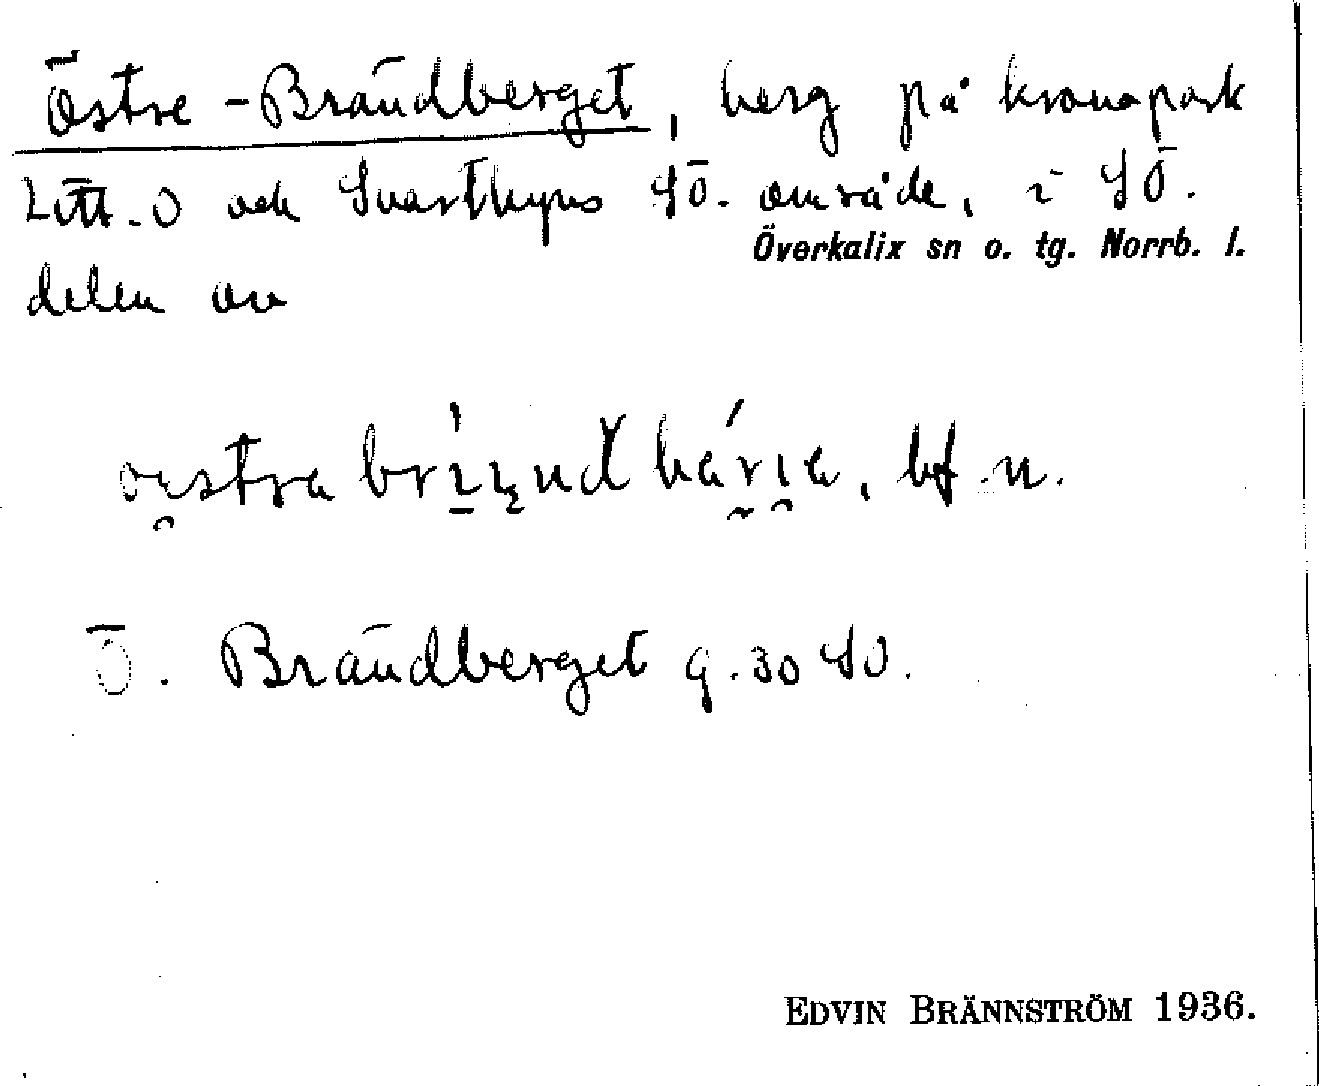 Östre-Brändberget, berg på kronopark
Litt. O och Svartbyns SÖ. område, i SÖ.
Överkalix sn o. tg. Norrb. l.
delen av
bf. n.
Ö. Brändberget g. 30 SO.
EDVIN BRÄNNSTRÖM 1936.